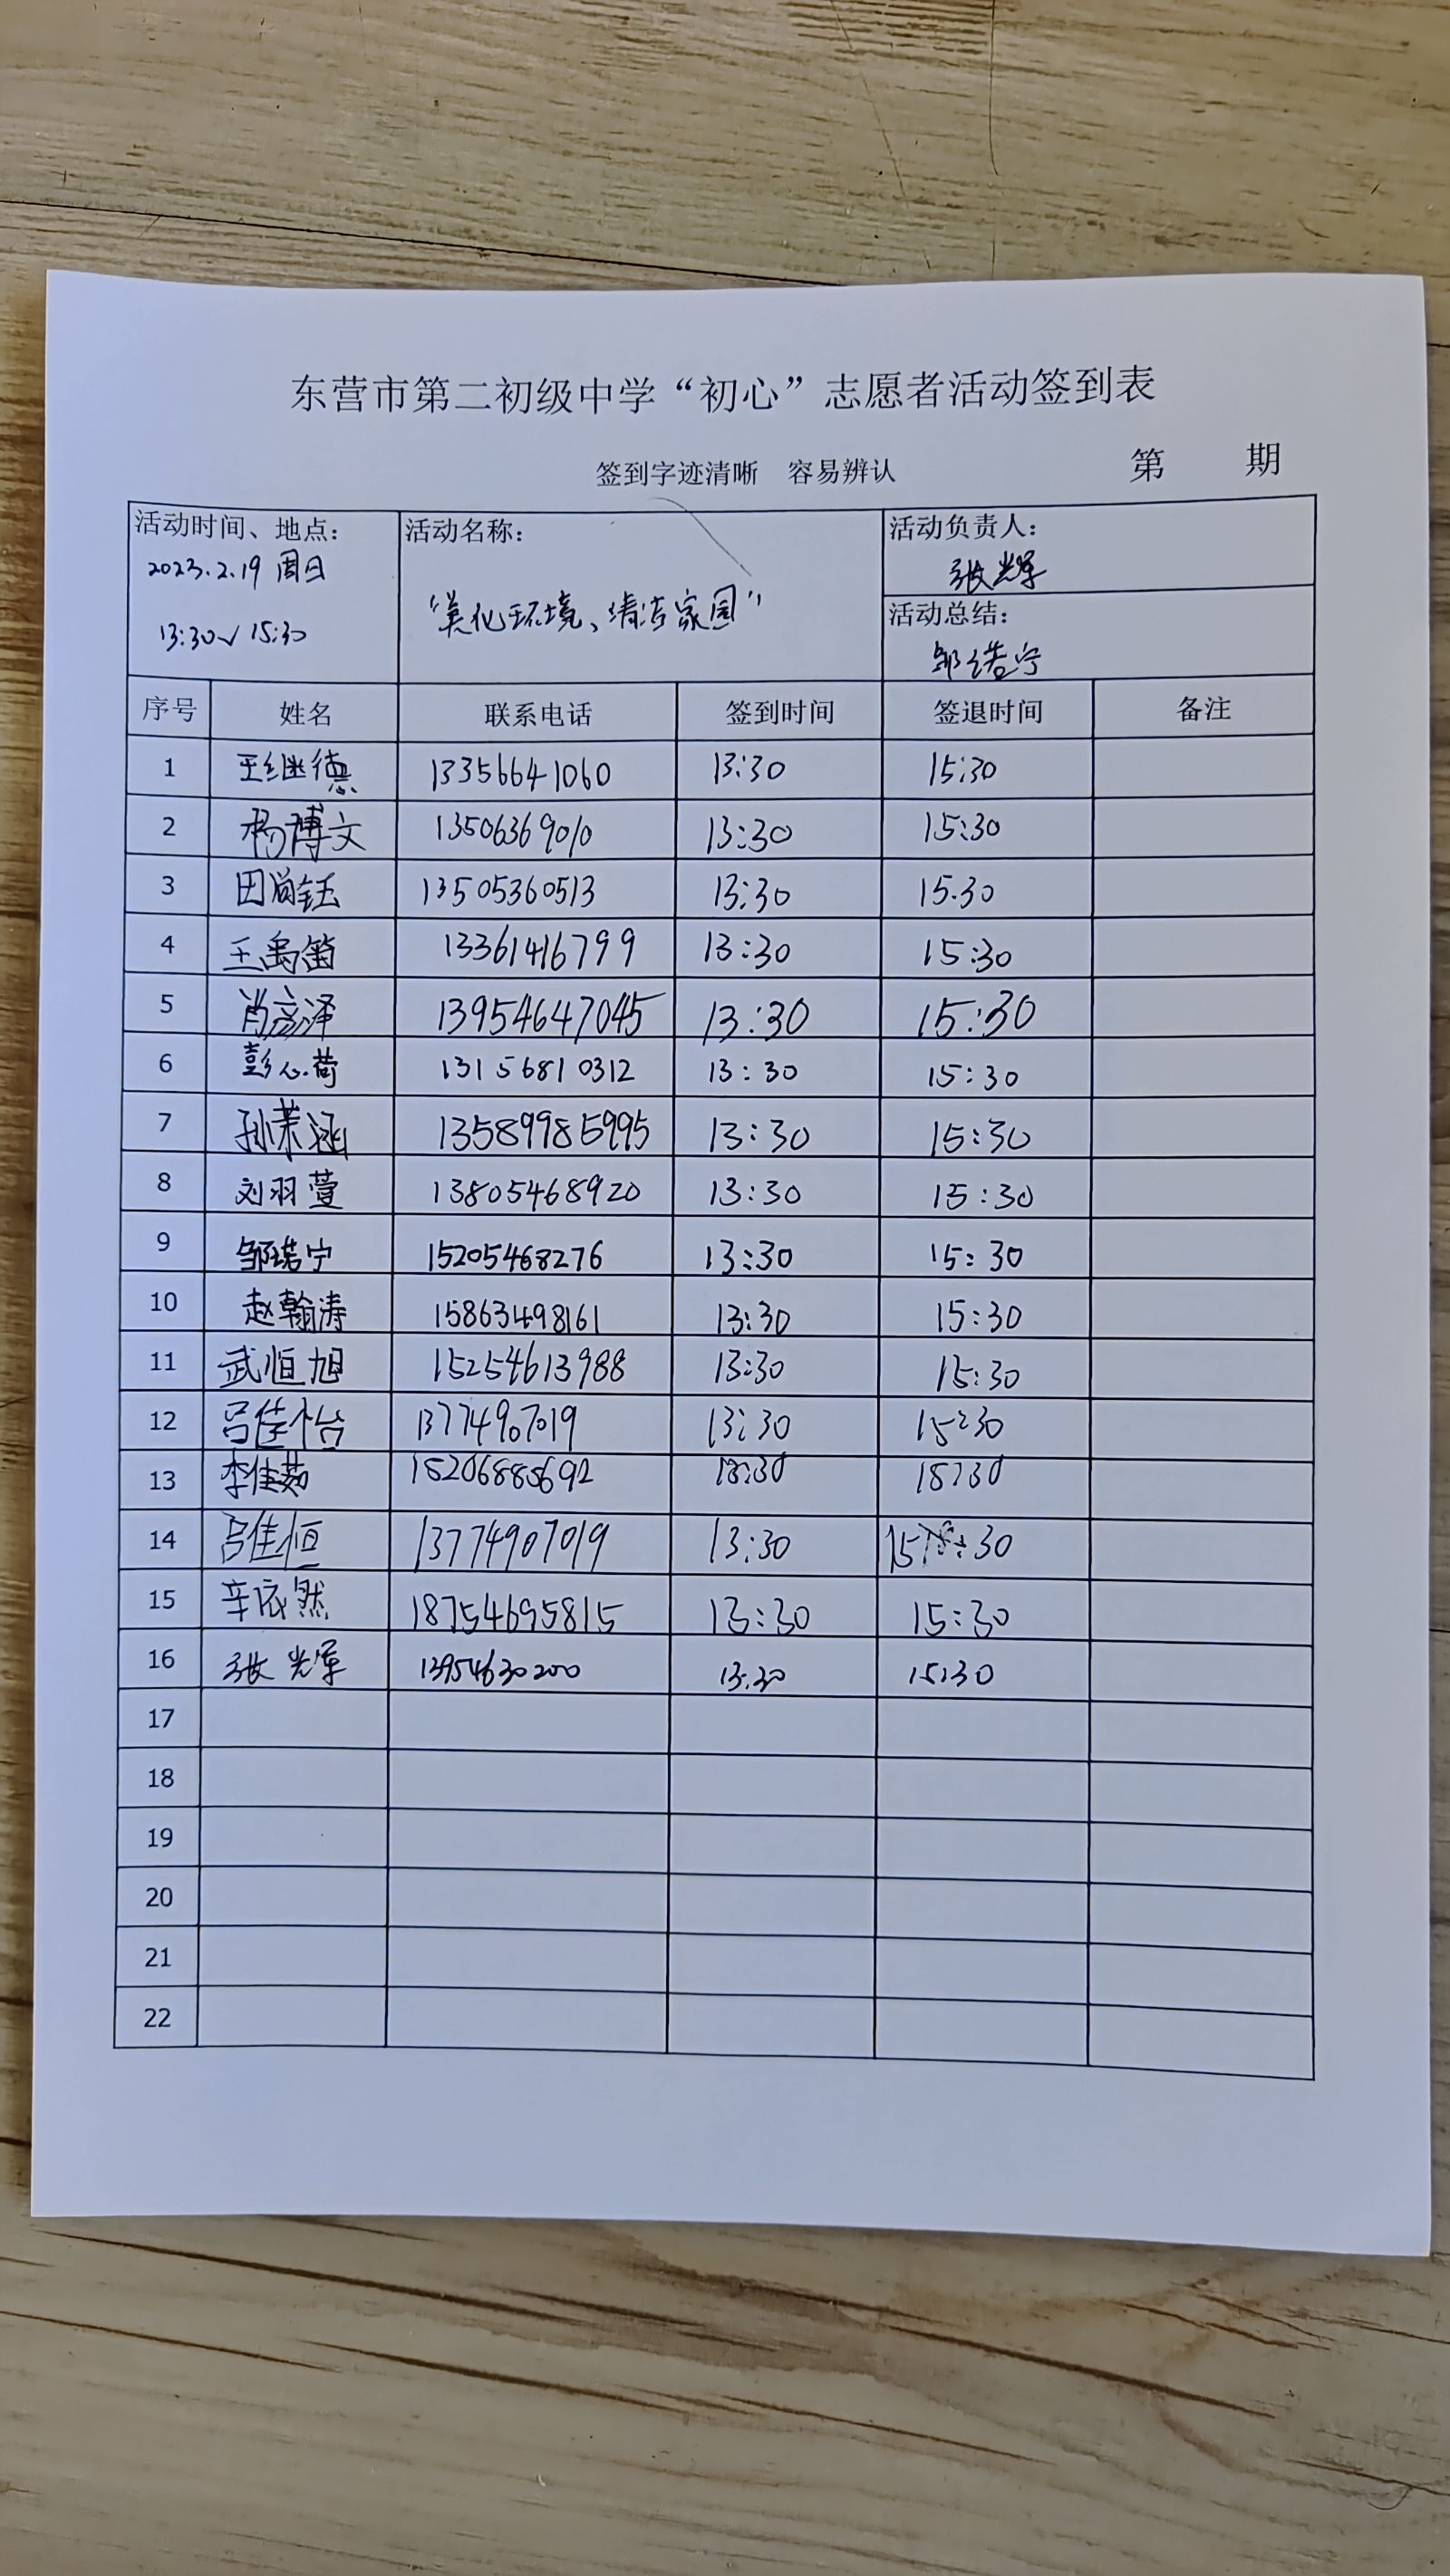 东营市第二初级中学“初心”志愿者活动签到表
签到字迹清晰 容易辨认 第 期
活动时间、地点： 活动名称： 活动负责人：
2023.2.19 周日 张光军
“美化环境、清洁家园” 活动总结：
13:30~15:30 邹诺宁
序号 姓名 联系电话 签到时间 签退时间 备注
1 王继德 13356641060 13:30 15:30
2 杨博文 13506369010 13:30 15:30
3 田尚钰 13505360513 13:30 15.30
4 王禹笛 13361416799 13:30 15:30
5 肖彦泽 13954647045 13:30 15:30
6 彭心荷 13156810312 13:30 15:30
7 孙茉涵 13589985995 13:30 15:30
8 刘羽萱 13805468920 13:30 15:30
9 邹诺宁 15205468276 13:30 15:30
10 赵翰涛 15863498161 13:30 15:30
11 武恒旭 15254613988 13:30 15:30
12 吕佳怡 13774907019 13:30 15:30
13 李佳茹 15206885692 13:30 15:30
14 吕佳恒 13774907019 13:30 15:30
15 辛依然 18754695815 13:30 15:30
16 张光军 13954630200 13:30 15:30
17
18
19
20
21
22